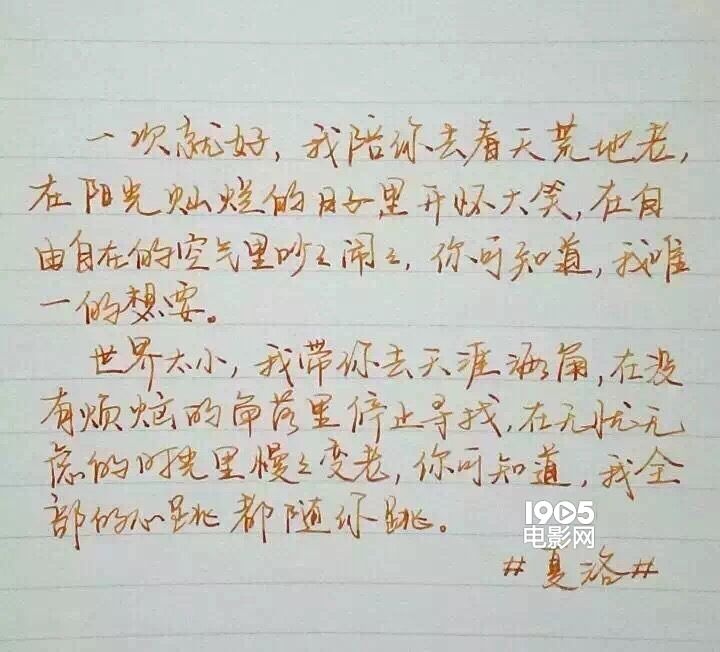 一次就好，我陪你去看天荒地老，
在阳光灿烂的日子里开怀大笑，在自
由自在的空气里吵々闹々，你可知道，我唯
一的想要。
世界太小，我带你去天涯海角，在没
有烦恼的角落里停止寻找，在无忧无
虑的时光里慢々变老，你可知道，我全
部的心跳都随你跳。
1905
电影网
#夏洛#